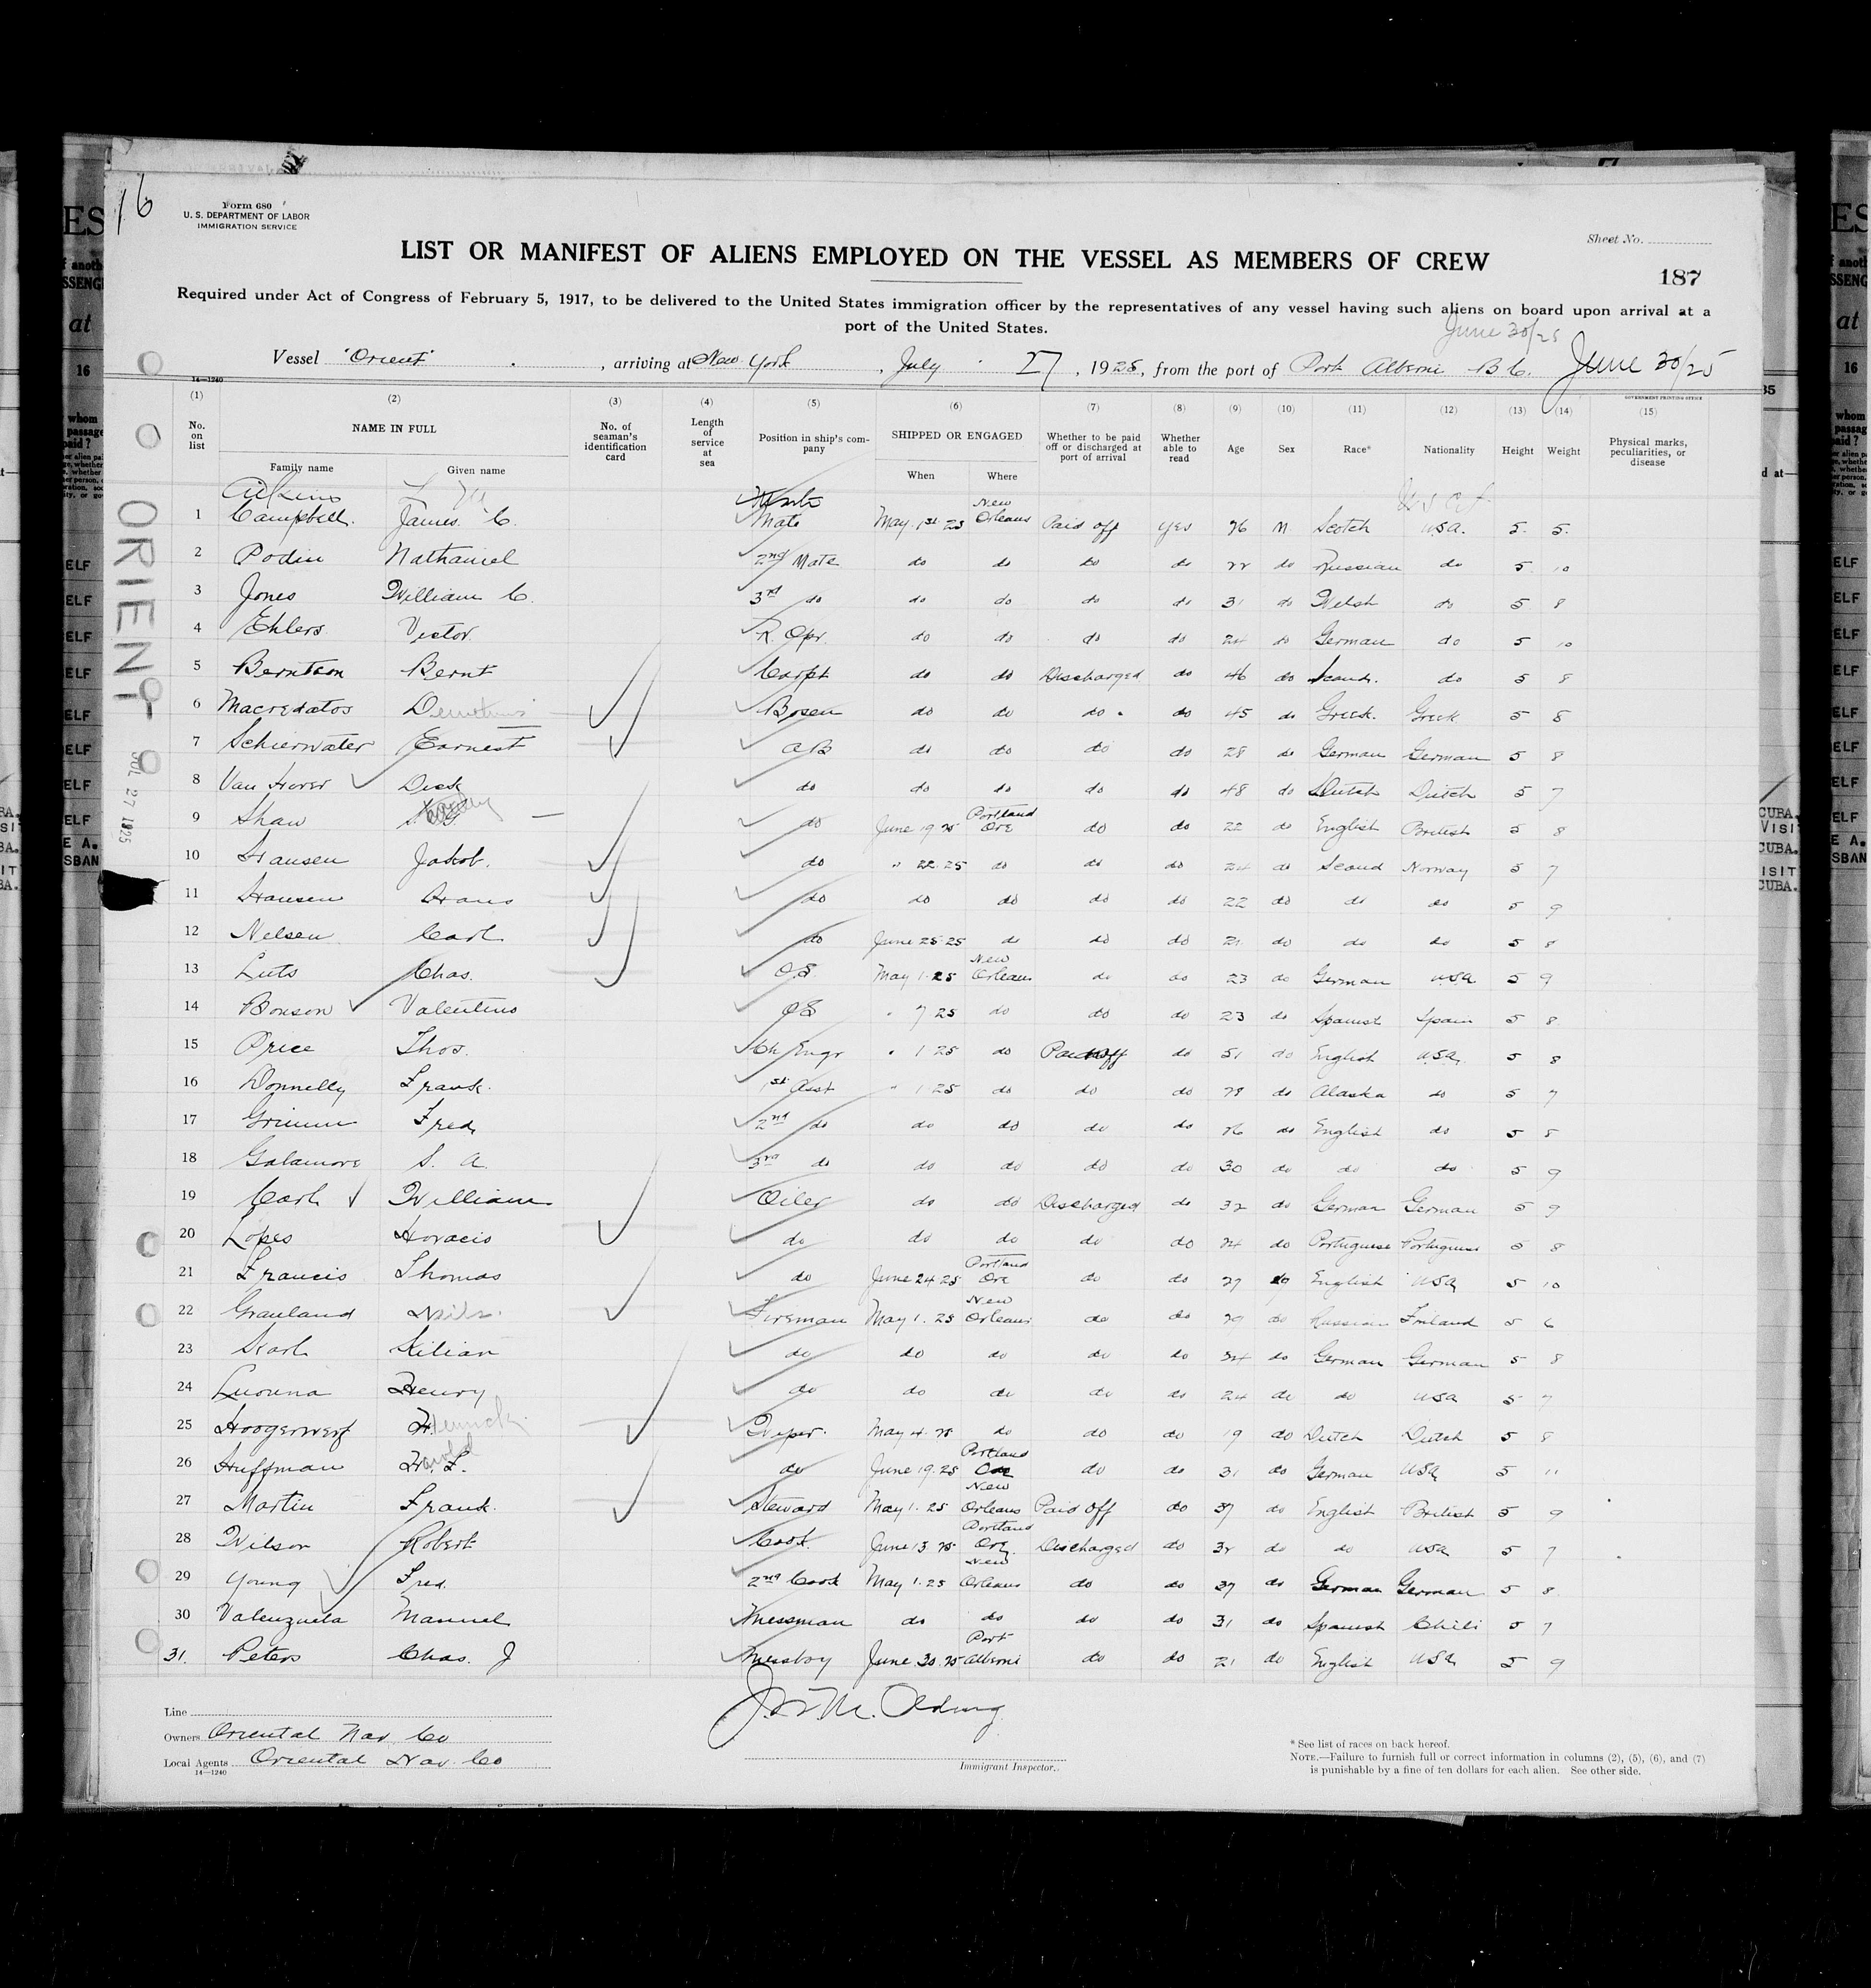 16
Form 680
U. S. DEPARTMENT OF LABOR
IMMIGRATION SERVICE
Sheet No.
LIST OR MANIFEST OF ALIENS EMPLOYED ON THE VESSEL AS MEMBERS OF CREW
187
Required under Act of Congress of February 5, 1917, to be delivered to the United States immigration officer by the representatives of any vessel having such aliens on board upon arrival at a
port of the United States.
June 30/25
Vessel "Orient", arriving at New York, July 27, 1925, from the port of Port Alberni B.C. June 30/25
14—1240
GOVERNMENT PRINTING OFFICE
(1) (2) (3) (4) (5) (6) (7) (8) (9) (10) (11) (12) (13) (14) (15)
No. on list NAME IN FULL No. of seaman's identification card Length of service at sea Position in ship's company SHIPPED OR ENGAGED Whether to be paid off or discharged at port of arrival Whether able to read Age Sex Race* Nationality Height Weight Physical marks, peculiarities, or disease
Family name Given name When Where
1 Campbell. James C. Mate May 1st 25 New Orleans Paid off Yes 26 M Scotch U.S.A. 5 5
2 Podin Nathaniel 2nd Mate do do do do 22 do Russian do 5 10
3 Jones William C. 3rd do do do do do 31 do Welsh do 5 8
4 Ehlers Victor R. Opr. do do do do 24 do German do 5 10
5 Berntson Bernt Carpt do do Discharged do 46 do Scand. do 5 8
6 Macredatos Bosen do do do do 45 do Greek. Greek 5 8
7 Schierwater Earnest AB do do do do 28 do German German 5 8
8 Van Hover Dick do do do do do 48 do Dutch Dutch 5 7
9 Shaw do June 19 25 Portland Ore do do 22 do English British 5 8
10 Hansen Jakob. do " 22 25 do do do 24 do Scand Norway 5 7
11 Hansen Hans do do do do do 22 do do do 5 9
12 Nelsen Carl do June 25 25 do do do 21 do do do 5 8
13 Luts Chas. O.S. May 1 25 New Orleans do do 23 do German USA 5 9
14 Bouson Valentino OS " 7 25 do do do 23 do Spanish Spain 5 8
15 Price Thos. Ch Engr " 1 25 do Paid off do 51 do English USA 5 8
16 Donnelly Frank. 1st Asst " 1 25 do do do 28 do Alaska do 5 7
17 Grimm Fred 2nd do do do do do 26 do English do 5 8
18 Galamore S. A. 3rd do do do do do 30 do do do 5 9
19 Carl William Oiler do do Discharged do 32 do German German 5 9
20 Lopes Horacio do do do do do 24 do Portuguese Portuguese 5 8
21 Francis Thomas do June 24 25 Portland Ore do do 27 do English USA 5 10
22 Granland Nils. Fireman May 1. 25 New Orleans do do 29 do Russian Finland 5 6
23 Karl Kilian do do do do do 34 do German German 5 8
24 Luouna Henry do do do do do 24 do do USA 5 7
25 Hoogerwerf H. Wiper. May 4. 25 do do do 19 do Dutch Dutch 5 8
26 Huffman H. L. do June 19. 25 Portland Ore do do 31 do German USA 5 11
27 Martin Frank. Steward May 1. 25 New Orleans Paid off do 37 do English British 5 9
28 Wilson Robert Cook June 13 25 Portland Ore Discharged do 32 do do USA 5 7
29 Young Fred. 2nd Cook May 1. 25 New Orleans do do 37 do German German 5 8
30 Valenzuela Manuel Messman do do do do 31 do Spanish Chili 5 7
31. Peters Chas. J Messboy June 30 25 Port Alberni do do 21 do English USA 5 9
ORIENT
JUL 27 1925
Line
Owners Oriental Nav Co
Local Agents Oriental Nav. Co
14—1240
Immigrant Inspector.
* See list of races on back hereof.
NOTE.—Failure to furnish full or correct information in columns (2), (5), (6), and (7)
is punishable by a fine of ten dollars for each alien. See other side.